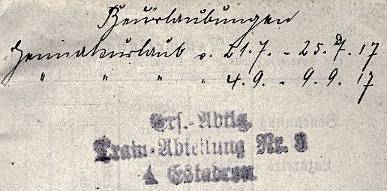 Beurlaubungen
Heimaturlaub v. 21.7. - 25.7. 17
" " " 4.9. - 9.9. 17
Ers.-Abtlg.
Train-Abteilung Nr. 3
Eskadron